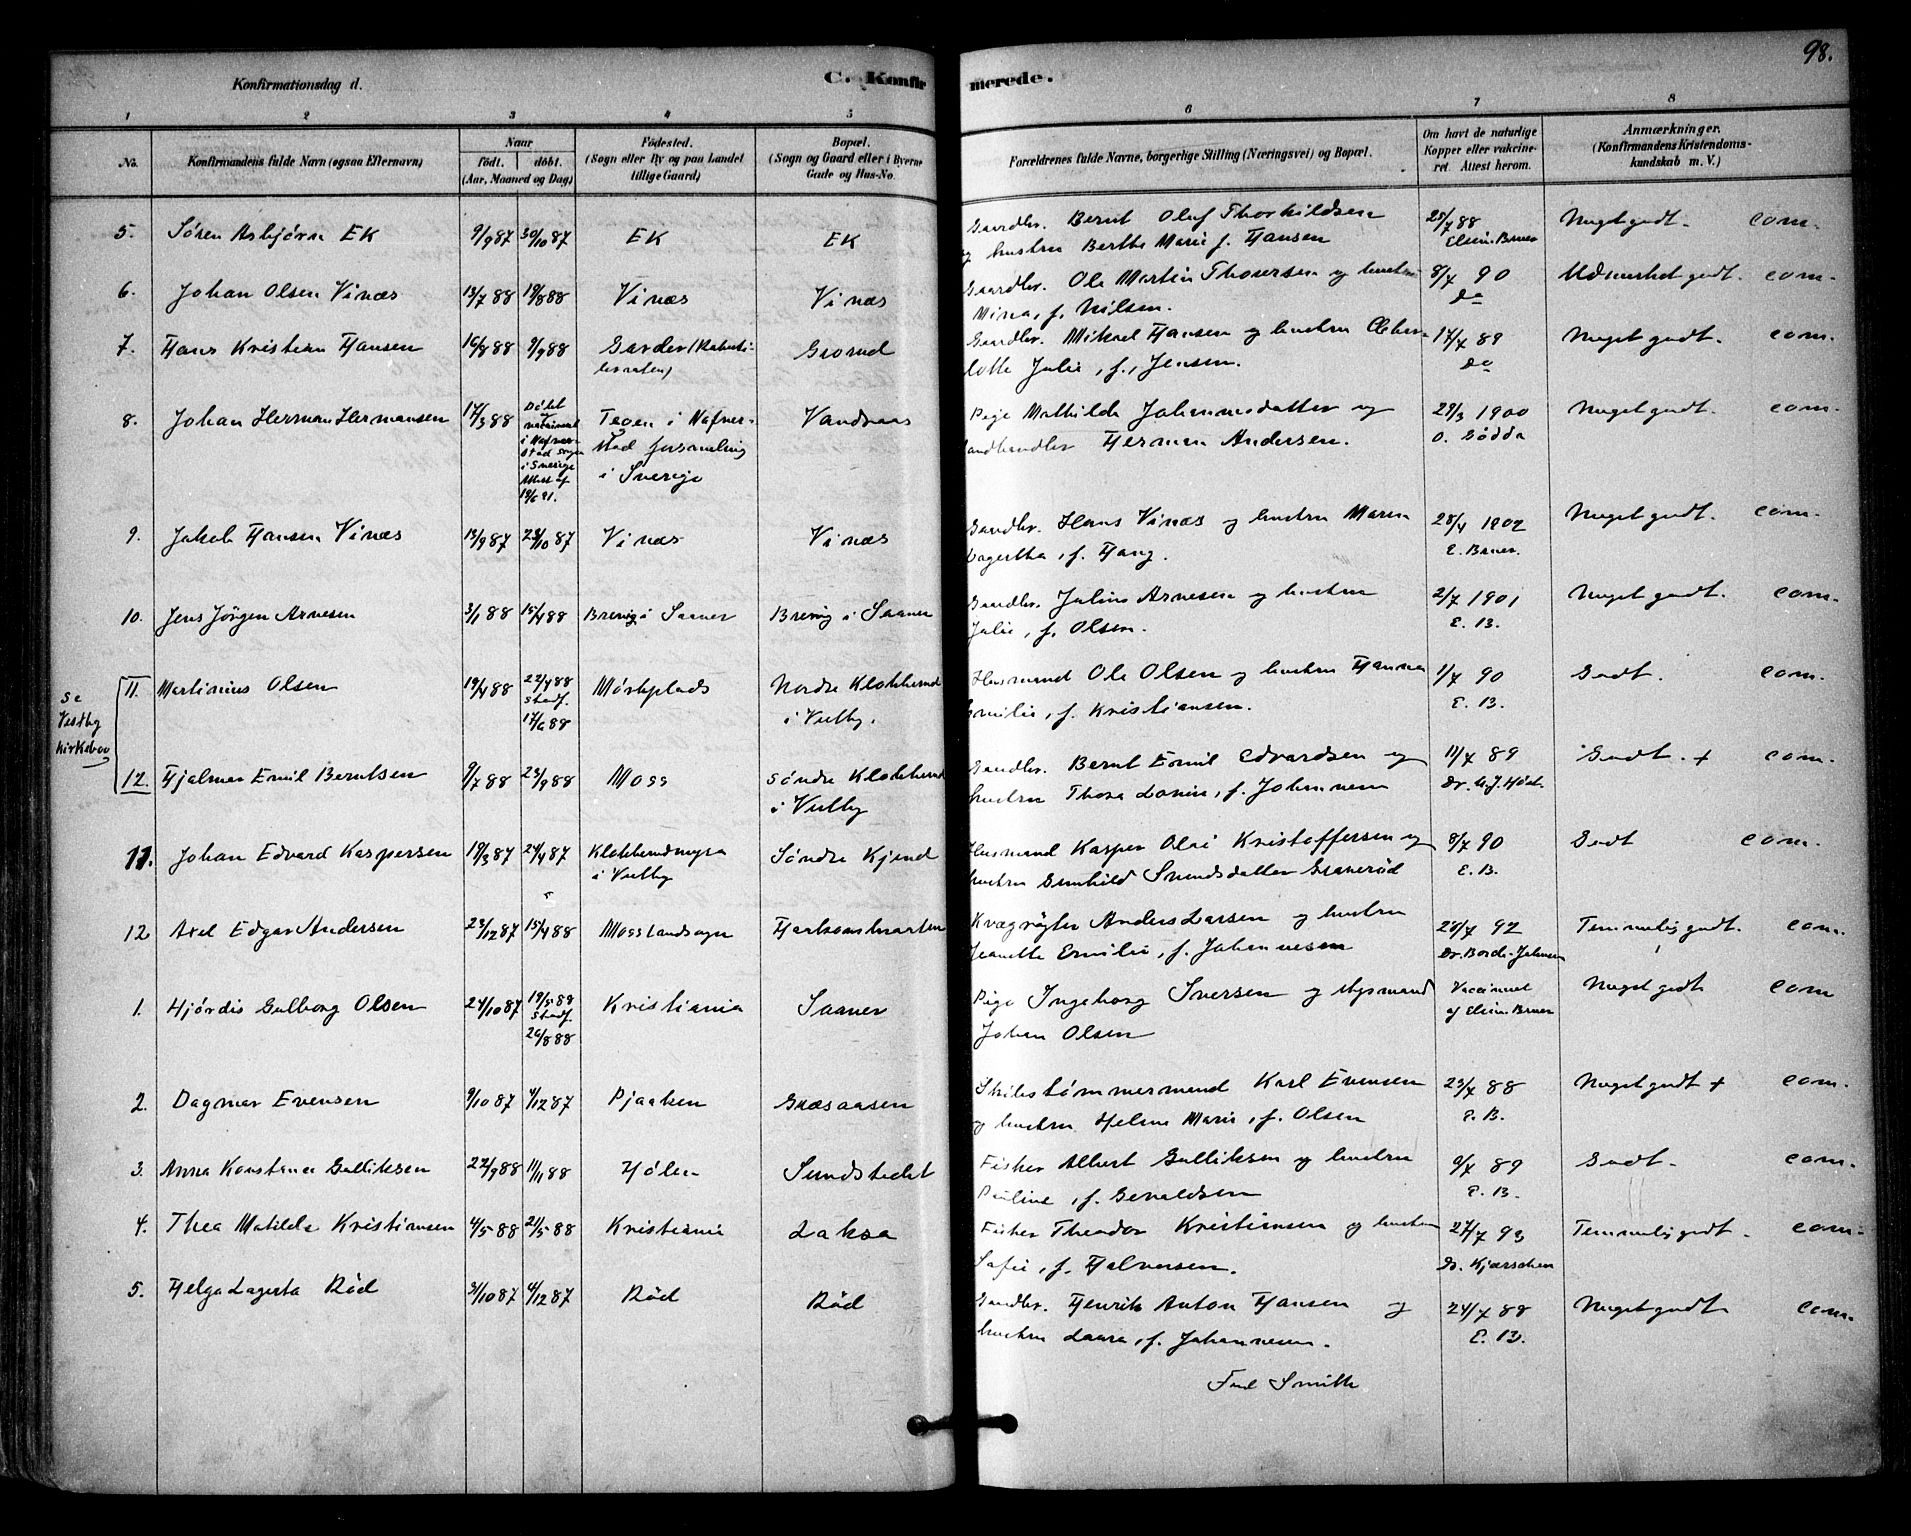 98.
Konfirmationsdag d. C. Konfir merede.
1 2 3 4 5 6 7 8
No. Konfirmandens fulde Navn (ogsaa Efternavn) Naar født. døbt. (Aar, Maaned og Dag) Fødested. (Sogn eller By og paa Landet tillige Gaard) Bopæl. (Sogn og Gaard eller i Byerne Gade og Hus-No. Forældrenes fulde Navne, borgerlige Stilling (Næringsvei) og Bopæl. Om havt de naturlige Kopper eller vakcineret. Attest herom. Anmærkninger. (Konfirmandens Kristendomskundskab m. V.)
5. Søren Asbjørn Ek 9/9 87 30/10 87 Ek Ek Gaardbr. Bernt Oluf Thorkildsen 25/7 88 Meget godt. com.
og hustru Berthe Marie f. Hansen Elise Bruer
6. Johan Olsen Vinæs 13/7 88 19/8 88 Vinæs Vinæs Gaardbr. Ole Martin Thoversen og hustru 8/7 90 Udmerket godt. com.
Mina, f. Nilsen. do
7. Hans Kristian Hansen 16/8 88 9/9 88 Garder Grorud Gaardbr. Mikael Hansen og hustru 17/7 89 Meget godt. com.
lotte Julie, f., Jensen. do
8. Johan Herman Hermansen 17/3 88 Døbt i Sverige Attest af 19/6 91. i Sverige Pige Mathilde Johannesdatter og 29/3 1900 Meget godt. com.
Landhandler Herman Andersen.
9. Jakob Hansen Vinæs 13/9 87 23/10 87 Vinæs Vinæs Gaardbr. Hans Vinæs og hustru Maren 28/4 1902 Meget godt. com.
Lagertha, f. Hang. E. Bruer.
10. Jens Jørgen Arnesen 3/1 88 15/4 88 Brevig i Saaner Brevig i Saaner Gaardbr. Julius Arnesen og hustru 2/7 1901 Meget godt. com.
Julie, f. Olsen. E. B.
Se Vestby kirkebog
11. Martinius Olsen 19/4 88 22/4 88 Stadf. 17/6 88 Mørkplads Nordre Klokkerud i Vestby. Husmand Ole Olsen og hustru Hanna 1/7 90 Godt. com.
Emilie, f. Kristiansen. E. B.
12. Hjalmar Emil Berntsen 9/7 88 23/9 88 Moss Søndre Klokkerud i Vestby Gaardbr. Bernt Emil Edvardsen og 11/7 89 Godt. + com.
hustru Thora Lovise, f. Johannesen
11. Johan Edvard Kaspersen 19/3 87 24/4 87 Klokkerudmyra i Vestby Søndre Kjend Husmand Kasper Olai Kristoffersen og 8/7 90 Godt com.
hustru Gunhild Granerød E. B.
12 Axel Edgar Andersen 23/12 87 15/4 88 Moss Landsogn Anders Larsen og hustru 28/7 92 Temmelig godt. com.
Jeanette Emilie, f. Johannesen
1. Hjørdis Gulborg Olsen 24/10 87 Stadf. 26/8 88 Kristiania Saaner Pige Ingeborg Iversen og Styrmand Vaccineret Meget godt com
Johan Olsen af Elise Bruer
2. Dagmar Evensen 9/10 87 4/12 87 Pjaaken Græsaasen Skibstømmermand Karl Evensen 23/7 88 Meget godt + com.
og hustru Helene Marie, f. Olsen E. B.
3. Anna Konstanse Gulliksen 22/9 88 11/11 88 Hølen Sundstedet Fisker Albert Gulliksen og hustru 9/7 89 Godt. com.
Pauline, f. Gevaldsen E. B.
4. Thea Matilde Kristiansen 4/5 88 21/5 88 Kristiania Laksa Fisker Theodor Kristiansen og hustru 27/7 93 Temmelig godt. com.
Sofie, f. Halversen.
5. Helga Lagerta Rød 31/10 87 4/12 87 Rød Rød Gaardbr. Henrik Anton Hansen og 24/7 88 Meget godt. com.
hustru Laura, f. Johannesen. E. B.
Smith